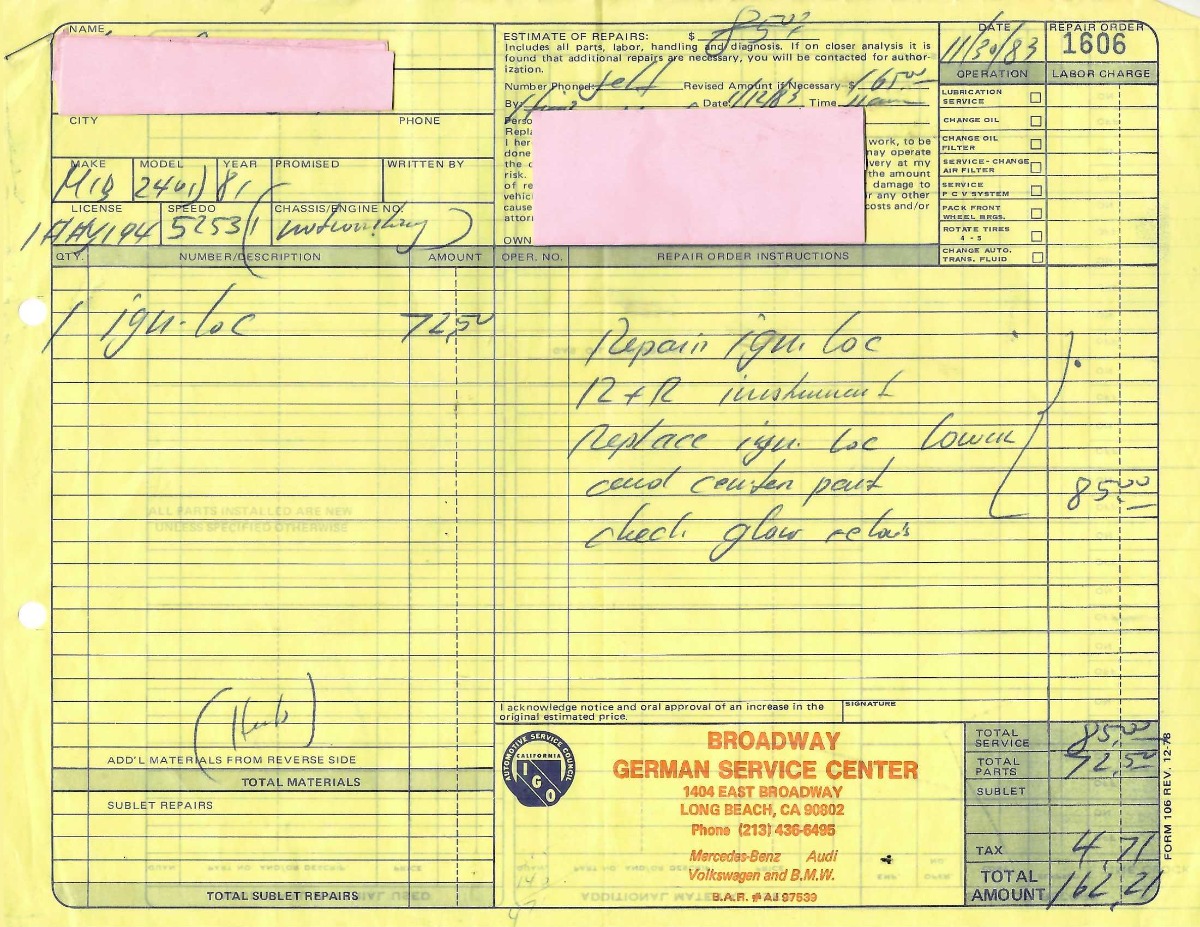 NAME
ESTIMATE OF REPAIRS: $ 85.00
Includes all parts, labor, handling and diagnosis. If on closer analysis it is
found that additional repairs are necessary, you will be contacted for author-
ization.
Number Phoned: Jeff Revised Amount if Necessary $ 165.00
By: Date 1/12/83 Time 11 am
DATE 11/30/83
REPAIR ORDER 1606
OPERATION LABOR CHARGE
LUBRICATION
SERVICE
CHANGE OIL
CHANGE OIL
FILTER
SERVICE-CHANGE
AIR FILTER
SERVICE
P C V SYSTEM
PACK FRONT
WHEEL BRGS.
ROTATE TIRES
4 - 5
CHANGE AUTO.
TRANS. FLUID
CITY PHONE
Perso
Repla
I here
done
the c
risk.
of re
vehic
cause
attorn
OWN
work, to be
may operate
very at my
the amount
damage to
or any other
costs and/or
MAKE MODEL YEAR PROMISED WRITTEN BY
MB 240D 81
LICENSE SPEEDO CHASSIS/ENGINE NO.
1HAY194 52531 (not working)
QTY. NUMBER/DESCRIPTION AMOUNT OPER. NO. REPAIR ORDER INSTRUCTIONS
1 ign. loc 72.50
Repair ign. loc
R + R instrument
Replace ign. loc lower
and center part 85.00
check glow relais
ALL PARTS INSTALLED ARE NEW
UNLESS SPECIFIED OTHERWISE
(Herb)
ADD'L MATERIALS FROM REVERSE SIDE
TOTAL MATERIALS
SUBLET REPAIRS
TOTAL SUBLET REPAIRS
I acknowledge notice and oral approval of an increase in the
original estimated price.
SIGNATURE
AUTOMOTIVE SERVICE COUNCIL
CALIFORNIA
IGO
BROADWAY
GERMAN SERVICE CENTER
1404 EAST BROADWAY
LONG BEACH, CA 90802
Phone (213) 436-6495
Mercedes-Benz Audi
Volkswagen and B.M.W.
B.A.R. # AJ 97539
TOTAL SERVICE 85.00
TOTAL PARTS 72.50
SUBLET
TAX 4.71
TOTAL AMOUNT 162.21
FORM 106 REV. 12-78